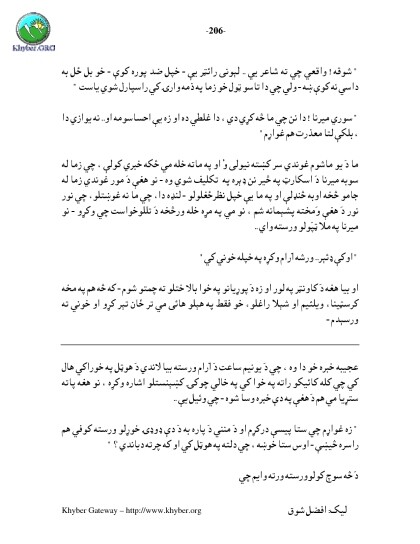 -206-
Khyber.ORG
" شوقه ! واقعي چې ته شاعر يې .. لېونی رائټر يې - خپل ضد پوره کوې - خو بل ځل به
داسې نه کوې ښه - ولې چې دا تاسو ټول خو زما په ذمه وارۍ کې راسپارل شوي ياست "
" سوري ميرنا ! دا نن چې ما څه کړي دي ، دا غلطي ده او زه يې احساسومه او.. نه يوازې دا
، بلکې لتا معذرت هم غواړم "
ما دَ يو ماشوم غوندې سر کښته نيولی وُ او په ماته خله مې ځکه خبرې کولې ، چې زما له
سوبه ميرنا دَ اسکارټ په څېر نن ډېره په تکليف شوې وه - نو هغې دَ مور غوندې زما له
جامو څخه اوبه څنډلې او په ما يې خپل نظر ځغلولو - لنډه دا ، چې ما نه غوښتلو ، چې نور
نور دَ هغې وَمخته پښېمانه شم ، نو مې په مړه خله ورڅخه دَ تللو خواست چې وکړو - نو
ميرنا په ملا ټپولو ورسته وايې..
" اوکې ډئېر.. ورشه آرام وکړه په خپله خونې کې "
او بيا هغه دَ کاونټر په لور او زه دَ پوړيانو په خوا بالا ختلو ته چمتو شوم - که څه هم په مخه
کرسټينا ، ويلئيم او شېلا راغلو ، خو فقط په هېلو هائی مې تر ځان تېر کړو او خونې ته
ورسېدم -
عجيبه خبره خو دا وه ، چې دَ يونيم ساعت دَ آرام ورسته بيا لاندې دَ هوټل په خوراکي هال
کې چې کله کائيکو راته په خوا کې په خالي چوکۍ کښېنستلو اشاره وکړه ، نو هغه پاته
ستړيا مې هم دَ هغې په دې خبره وسا شوه - چې وئيل يې..
" زه غواړم چې ستا پيسې درکړم او دَ منتې دَ پاره به دَ دې ډوډۍ خوړلو ورسته کوفي هم
راسره څېښې - اوس ستا خوښه ، چې دلته په هوټل کې او که چرته دباندې ؟ "
دَ څه سوچ کولو ورسته ورته وايم چې
Khyber Gateway – http://www.khyber.org
ليک: افضل شوق